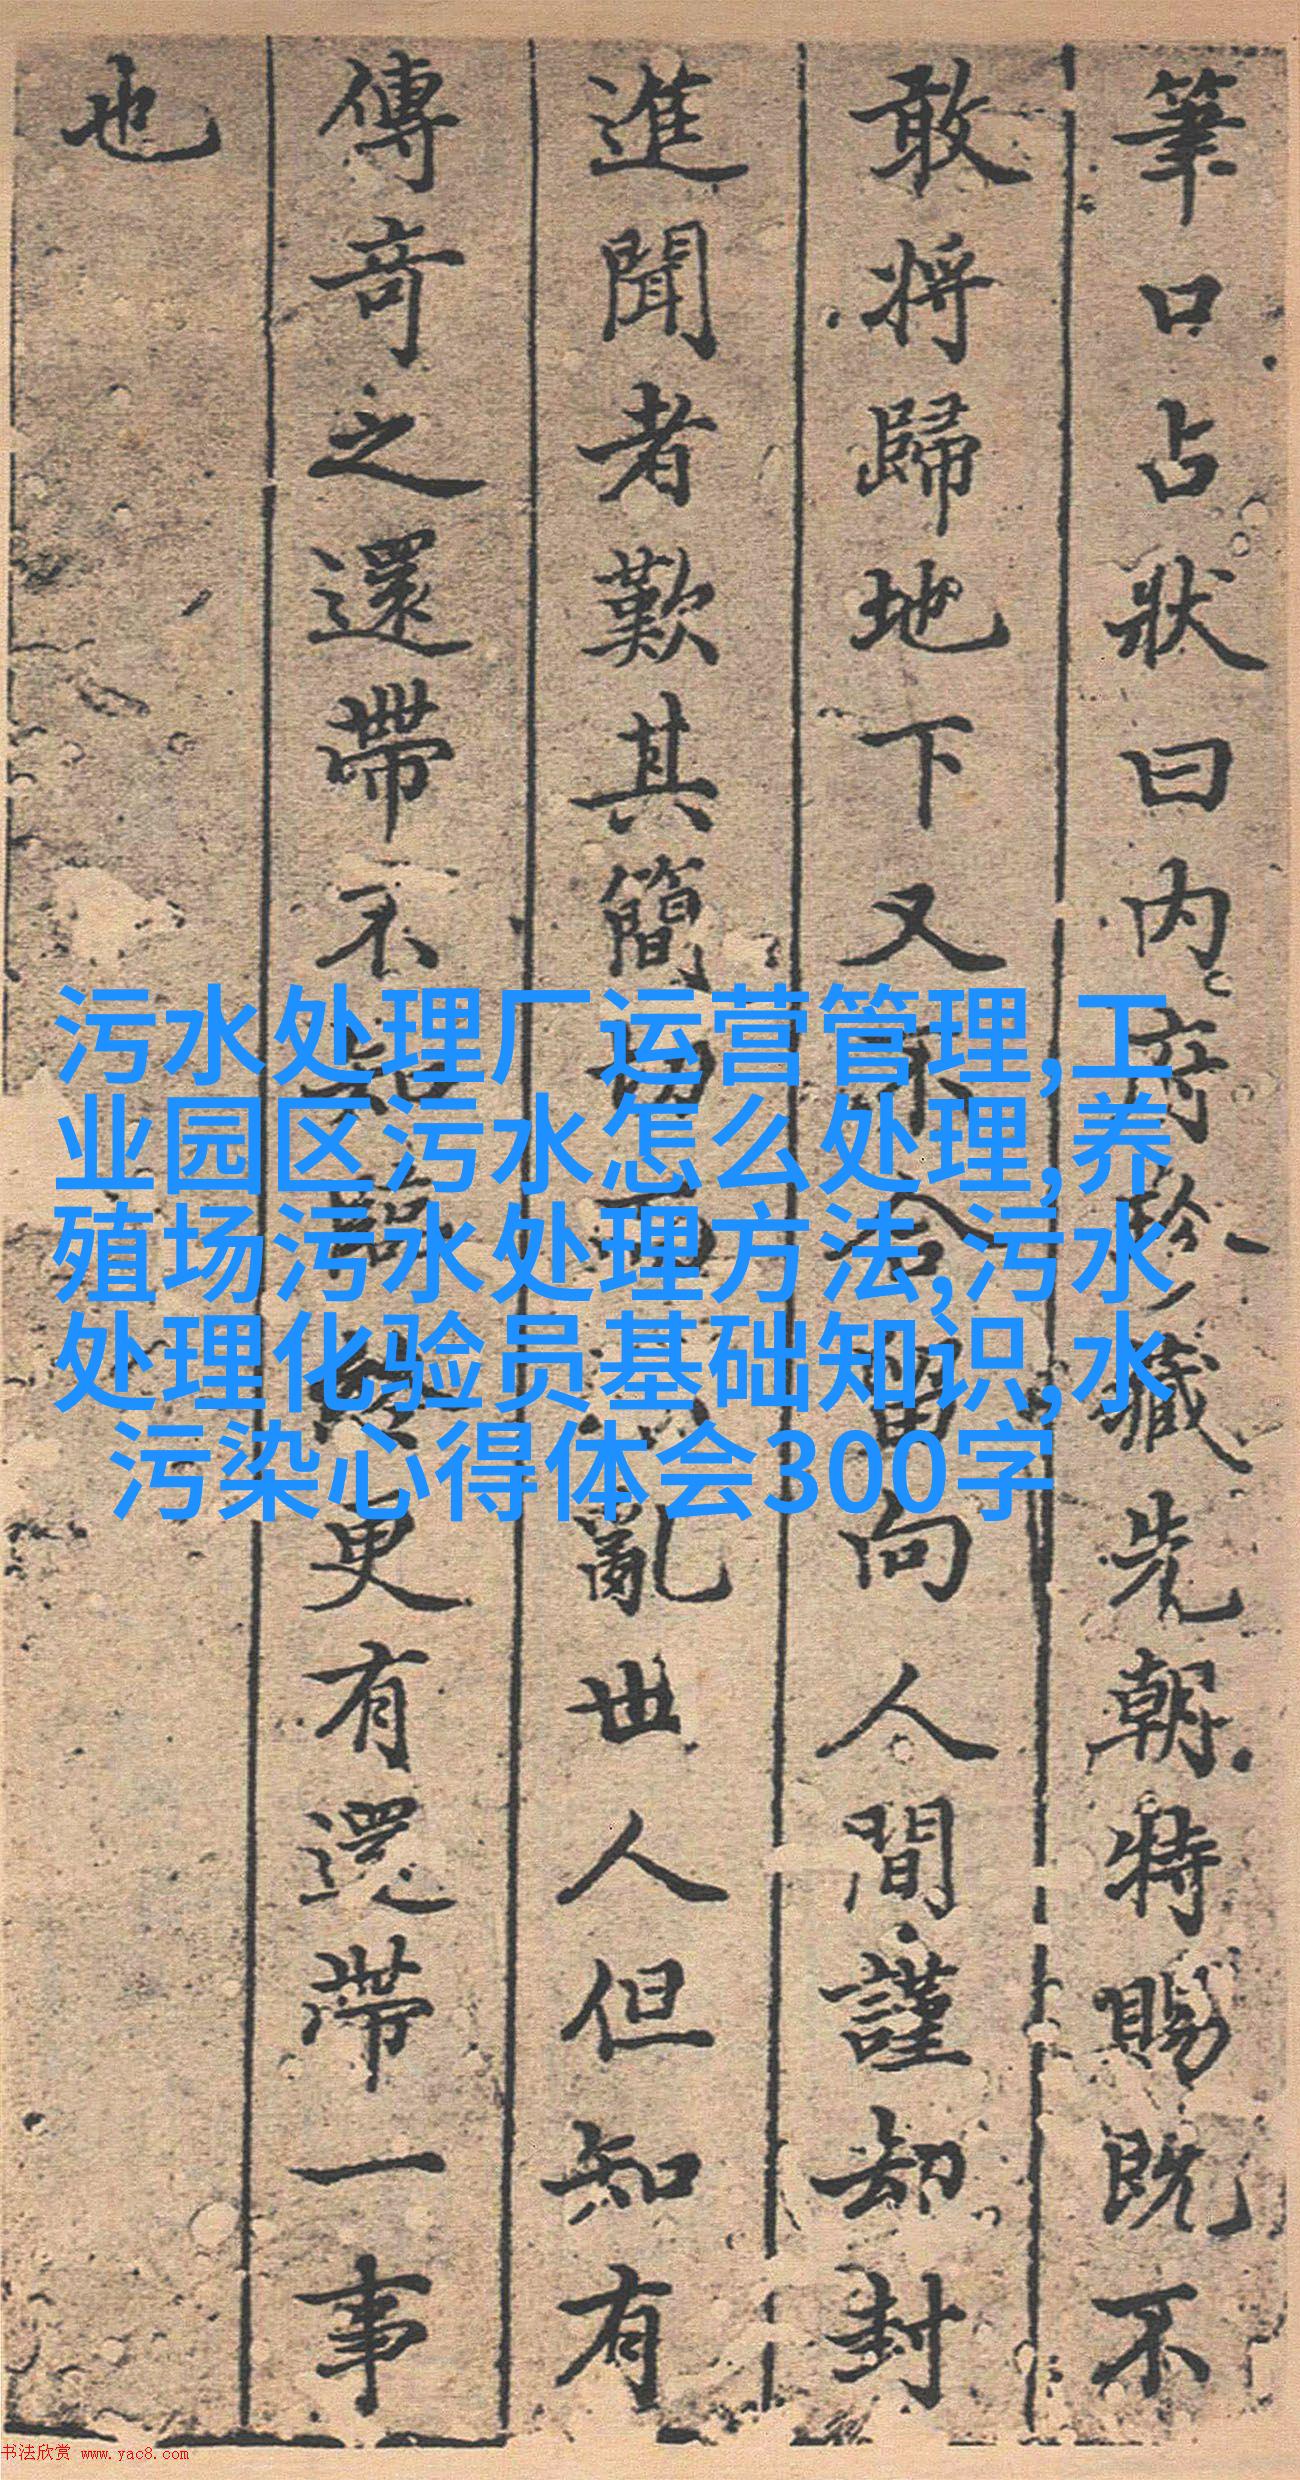 筆口占狀曰内府珍藏先朝特賜既不
敢將歸地下又不合留向人間謹却封
進聞者歎其簡切而不亂世人但知有
傳奇之還帶不知更有還帶一事
也
污水处理厂运营管理,工
业园区污水怎么处理,养
殖场污水处理方法,污水
处理化验员基础知识,水
污染心得体会300字
书法欣赏 www.yac8.com